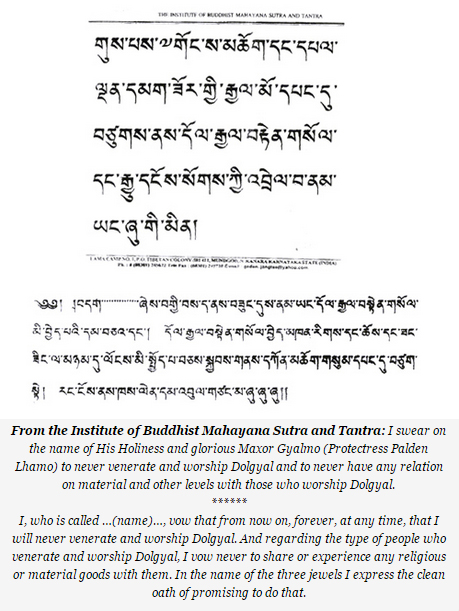 THE INSTITUTE OF BUDDHIST MAHAYANA SUTRA AND TANTRA
གུས་པས་༧གོང་ས་མཆོག་དང་དཔལ་
ལྡན་དམག་ཟོར་གྱི་རྒྱལ་མོ་དཔང་དུ་
བཙུགས་ནས་དོལ་རྒྱལ་བརྟེན་གསོལ་
དང་རྒྱུ་དངོས་སོགས་ཀྱི་འབྲེལ་བ་ནམ་
ཡང་ཞུ་གི་མིན།
LAMA CAMP NO. P.O. TIBETAN COLONY KARNATAKA STATE (INDIA)
༄༅། །བདག་..............ཞེས་བགྱི་བས་ད་ནས་བཟུང་དུས་ནམ་ཡང་དོལ་རྒྱལ་བསྟེན་གསོལ་
མི་བྱེད་པའི་དམ་བཅའ་དང་། དོལ་རྒྱལ་བསྟེན་གསོལ་བྱེད་མཁན་རིགས་དང་ཆོས་དང་ཟང་
ཟིང་ལ་མཉམ་དུ་ལོངས་མི་སྤྱོད་པ་བཅས་སྐྱབས་གནས་དཀོན་མཆོག་གསུམ་དཔང་དུ་བཙུག་
སྟེ། རང་ངོས་ནས་ཁས་ལེན་དམ་འབུལ་གཙང་མ་ཞུ་ཞུ་ཞུ།།
From the Institute of Buddhist Mahayana Sutra and Tantra: I swear on
the name of His Holiness and glorious Maxor Gyalmo (Protectress Palden
Lhamo) to never venerate and worship Dolgyal and to never have any relation
on material and other levels with those who worship Dolgyal.
******
I, who is called ...(name)..., vow that from now on, forever, at any time, that I
will never venerate and worship Dolgyal. And regarding the type of people who
venerate and worship Dolgyal, I vow never to share or experience any religious
or material goods with them. In the name of the three jewels I express the clean
oath of promising to do that.